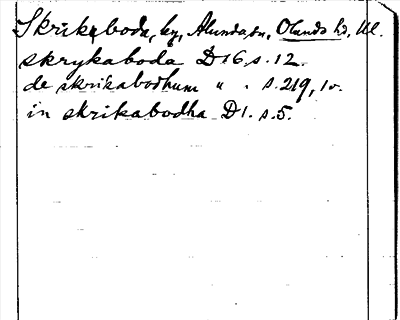 Skrikeboda, by, Alunda, sn, Olands hd, Ul.
skrykaboda D 16, s. 12.
de skrikabodhum " . s. 219, 1 v.
in skrikabodha D 1. s. 5.